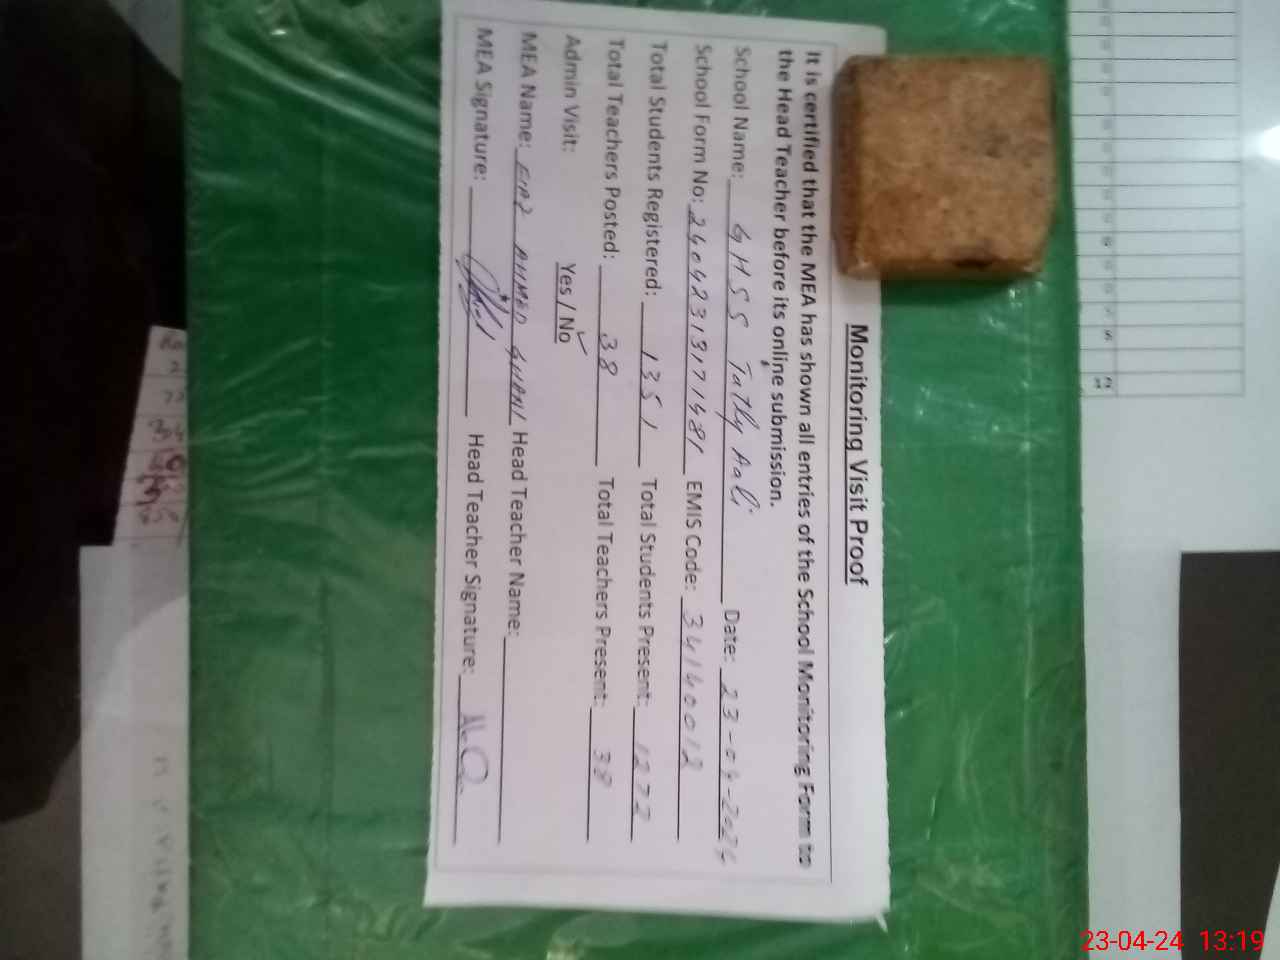 Monitoring Visit Proof
It is certified that the MEA has shown all entries of the School Monitoring Form to
the Head Teacher before its online submission.
School Name: GHSS Tatly Aali Date: 23-04-2024
School Form No: 24042313171481 EMIS Code: 34140012
Total Students Registered: 1351 Total Students Present: 1272
Total Teachers Posted: 38 Total Teachers Present: 38
Admin Visit: Yes / No ✓
MEA Name: AHMED GHANI Head Teacher Name:
MEA Signature: Head Teacher Signature:
23-04-24 13:19